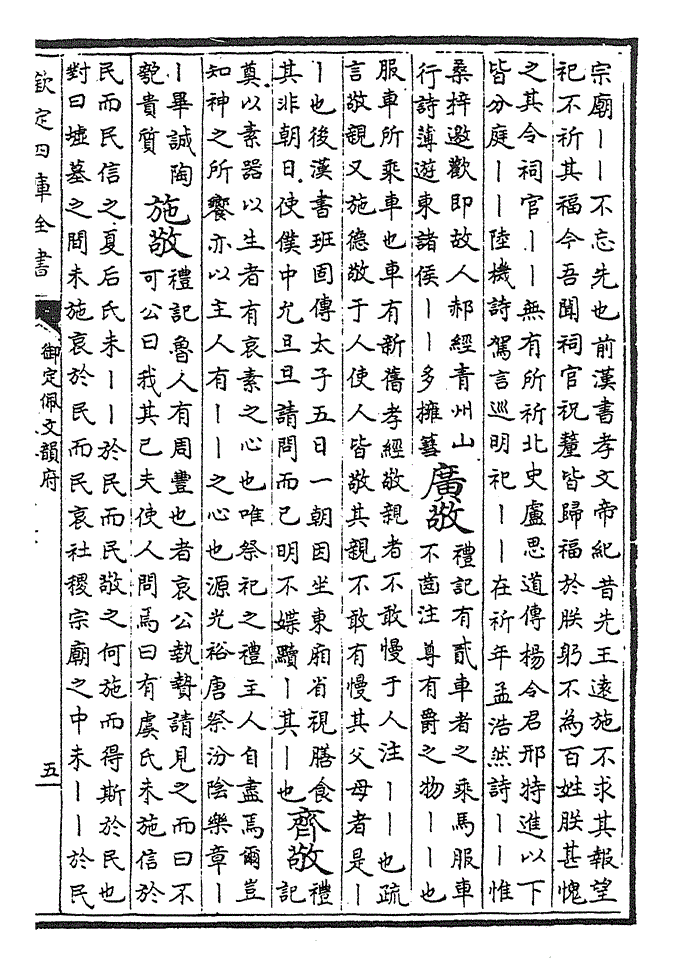 宗廟丨丨不忘先也前漢書孝文帝紀昔先王遠施不求其報望
祀不祈其福今吾聞祠官祝釐皆歸福於朕躬不為百姓朕甚愧
之其令祠官丨丨無有所祈北史盧思道傳楊令君邢特進以下
皆分庭丨丨陸機詩駕言巡明祀丨丨在祈年孟浩然詩丨丨惟
桑梓邀歡即故人郝經青州山
行詩薄遊東諸侯丨丨多擁篲
廣敬
禮記有貳車者之乘馬服車
不齒注尊有爵之物丨丨也
服車所乘車也車有新舊孝經敬親者不敢慢于人注丨丨也疏
言敬親又施德敬于人使人皆敬其親不敢有慢其父母者是丨
丨也後漢書班固傳太子五日一朝因坐東廂省視膳食
其非朝日使僕中允旦旦請問而已明不媟黷丨其丨也
齊敬
禮
記
奠以素器以生者有哀素之心也唯祭祀之禮主人自盡焉爾豈
知神之所饗亦以主人有丨丨之心也源光裕唐祭汾陰樂章丨
丨畢誠陶
匏貴質
施敬
禮記魯人有周豐也者哀公執贄請見之而曰不
可公曰我其已夫使人問焉曰有虞氏未施信於
民而民信之夏后氏未丨丨於民而民敬之何施而得斯於民也
對曰墟墓之間未施哀於民而民哀社稷宗廟之中未丨丨於民
欽定四庫全書
御定佩文韻府
五